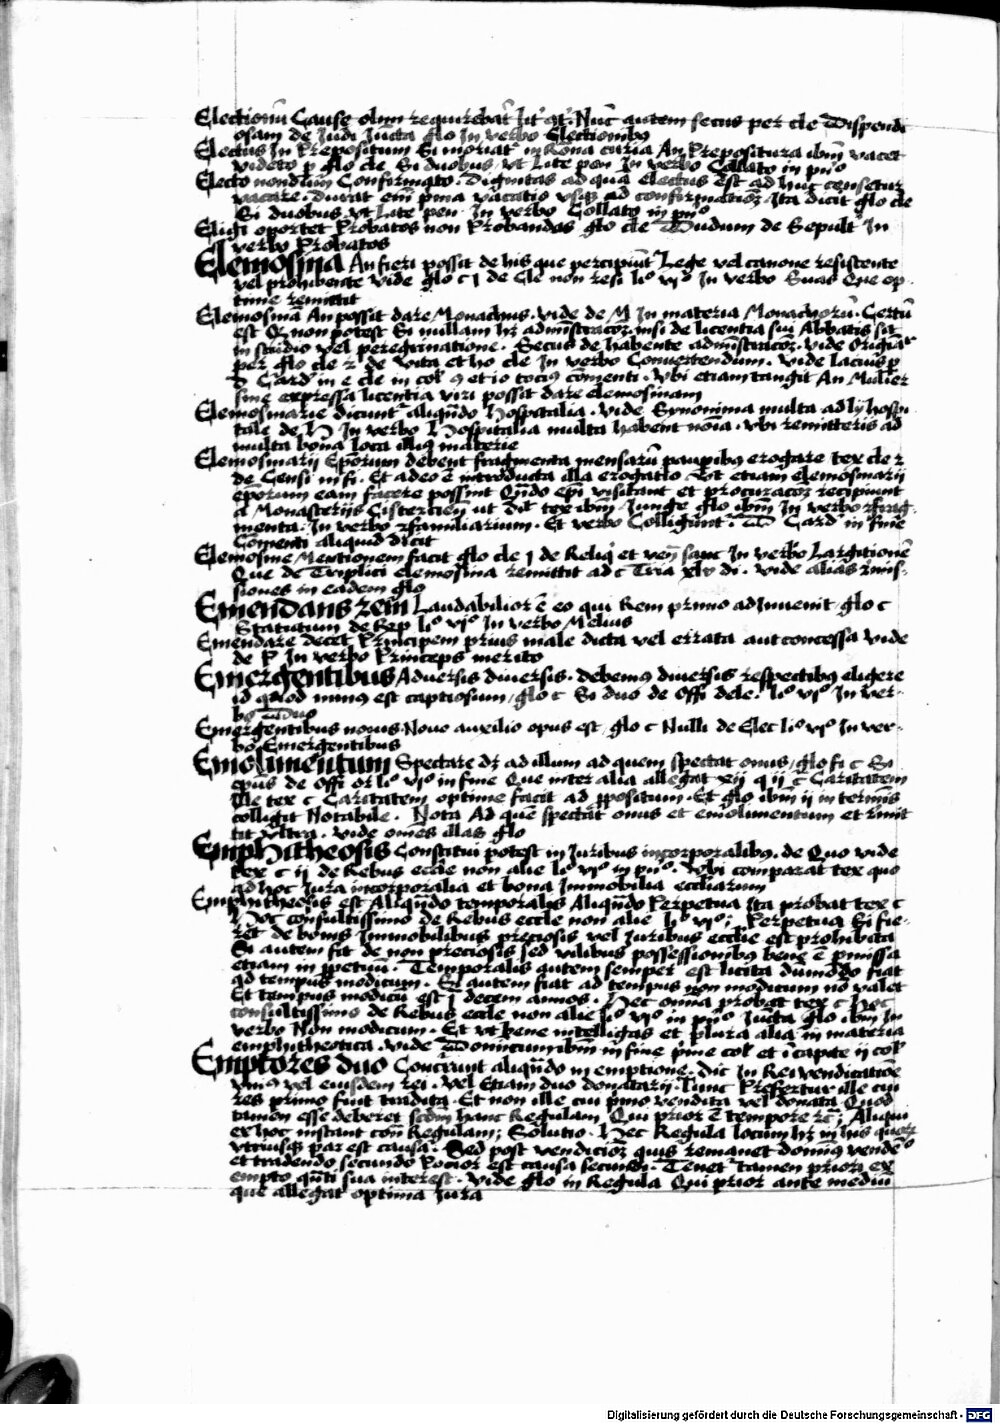 Electionū Cause olim requirebat̄ Nūc autem secus per cle Dispendi
osam de Judi Juncta glo In verbo Electionibꝰ
Electus In Prepositum Si moriat̄ in Rōna curia An Prepositura ibm̄ vacet
videto p glo cle Si duobus ut Lite pen In verbo Collato in pn̄º
Electo nondum Confirmato. Dignitas ad quā electus est ad huc censetur
vacare. Durat em̄ pma vacatio usqꝫ ad confirmationē Ita dicit glo cle
Si duobus ut Lite pen. In verbo Collato in pnº
Eligi oportet Probatos non Probandos glo cle Dudum de Sepult̄ In
verbo Probatos
Elemosina An fieri possit de his que percipiūt Lege vel canone resistente
vel prohibente vide glo c j de Cle non resi liº vjº In verbo Suas Que op
time remittit
Elemosinā An possit dare Monachus. vide de M In materia Monachorū. Certū
est Qꝫ non potest Si nullam hꝫ administracōꝫ nisi de licentia sui Abbatis sit
in studio vel peregrinatione. Secus de habente administracōꝫ vide Origīat̄
per glo cle 2ª de vita et ho cle In verbo Convertendum. Vide lacius p
D Card̄ in e cle in col 9 et io tocius cōmenti. Ubi etiam tangit An Mulier
sine expressa licentia viri possit dare elemosinam
Elemosinarie dicunt̄ aliqn̄do Hospitalia. Vide Synonima multa ad ly hospi
tale de H In verbo Hospitalia multa habent nōia. ubi remitteris ad
multa bona loca illius materie
Elemosinarij Ep̄orum debent fragmenta mensarū paupibus erogare tex cle 2
de Censi in fi. Et adeo ē introducta illa erogatio Ut etiam elemosinarij
ep̄orum eam facere possint Qn̄do epī visitant et procuracōꝫ recipiunt
a Monasterijs Cistercien̄ ut dit tex ibm̄ Iunge glo ibm̄ In verbo Frag
menta. In verbo Familiarium. Et verbo Colligunt. D Card̄ in fine
Comenti aliquid dicit
Elemosine Mentionem facit glo cle j de Reliq̄ et ven̄ sanc In verbo Largitionē
Que de Triplici elemosina remittit ad c Tria xlv di. Vide alias rmis
siones in eadem glo
Emendans rem Laudabilior ē eo qui Rem primo adinvenit glo c
Statutum de Rep liº vjº In verbo Melius
Emendare decet Principem prius male dicta vel errata aut concessa vide
de P In verbo Princeps merito
Emergentibus Adversis diversis. Debemus diversis respectibus eligere
id quod minus est captiosum, glo c Si duo de offi dele. liº vjº In ver
bo Duo
Emergentibus novis Novo auxilio opus est, glo c Nulli de Elec liº vjº In ver
bo Emergentibus
Emolumentum Spectare dꝫ ad illum ad quem spectat onus, glo fi c Si
epus de offi or liº vjº in fine Que inter alia allegat xij q ij c Caritatem
Ille tex c Caritatem optime facit ad ppositum. Et glo ibm̄ ij in termīs
colligit Notabile. Nota Ad quē spectāt onus et emolumentum et rmit
tit ultra. Vide omēs illas glo
Emphitheosis Constitui potest in Juribus incorporalibus. de Quo vide
tex c ij de Rebus eccle non alie liº vjº in pnº. Ubi comparat tex quo
ad hoc Iura incorporalia et bona Immobilia eccliarum
Emphitheosis est Aliqn̄do temporalis Aliqn̄do Perpetua Ita probat tex c
Hoc consultissimo de Rebus eccle non alie liº vjº; Perpetua Si fie
ret de bonis Immobilibus preciosis vel Iuribus ecclie est prohibita
Si autem fit de non preciosis sed vilibus possessionibus bene ē pmissa
etiam in ppetuū. Temporalis autem semper est licita dūmodo fiat
ad tempus modicum. Si autem fiat ad tempus non modicum nō valet
Et tempus modicū est j decem annos. Hec omia probat tex c Hoc
consultissimo de Rebus eccle non alie liº vjº in pnº Juncta glo ibm̄ In
verbo Non modicum. Et ut bene intelligas et plura alia in materia
emphitheotica. Vide Dominicum ibm̄ in fine pme col et ī capite ij col
Emptores duo Concurrūt aliqn̄do in emptione. Dic In Rei vendicatiōe
unius vel eiusdem rei. Vel Etiam duo donatarij. Tunc Prefertur ille cui
res primo fuit tradita. Et non ille cui primo vendita vel donata Quod
tamen esse deberet scdm̄ hanc Regulam, Qui prior ē tempore rc̄; Aliqui
ex hoc instant contra Regulam; Solutio. Hec Regula locum hꝫ in his quoꝝ
utriusqꝫ par est causa. Sed post vendicionem quis remanet dominus vendēº
et tradendo secundo Pocior est causa secundi. Tenet̄ tamen priori ex
empto qn̄ti sua interest. Vide glo in Regula Qui prior ante mediū
que allegat optima Iura
Digitalisierung gefördert durch die Deutsche Forschungsgemeinschaft - DFG